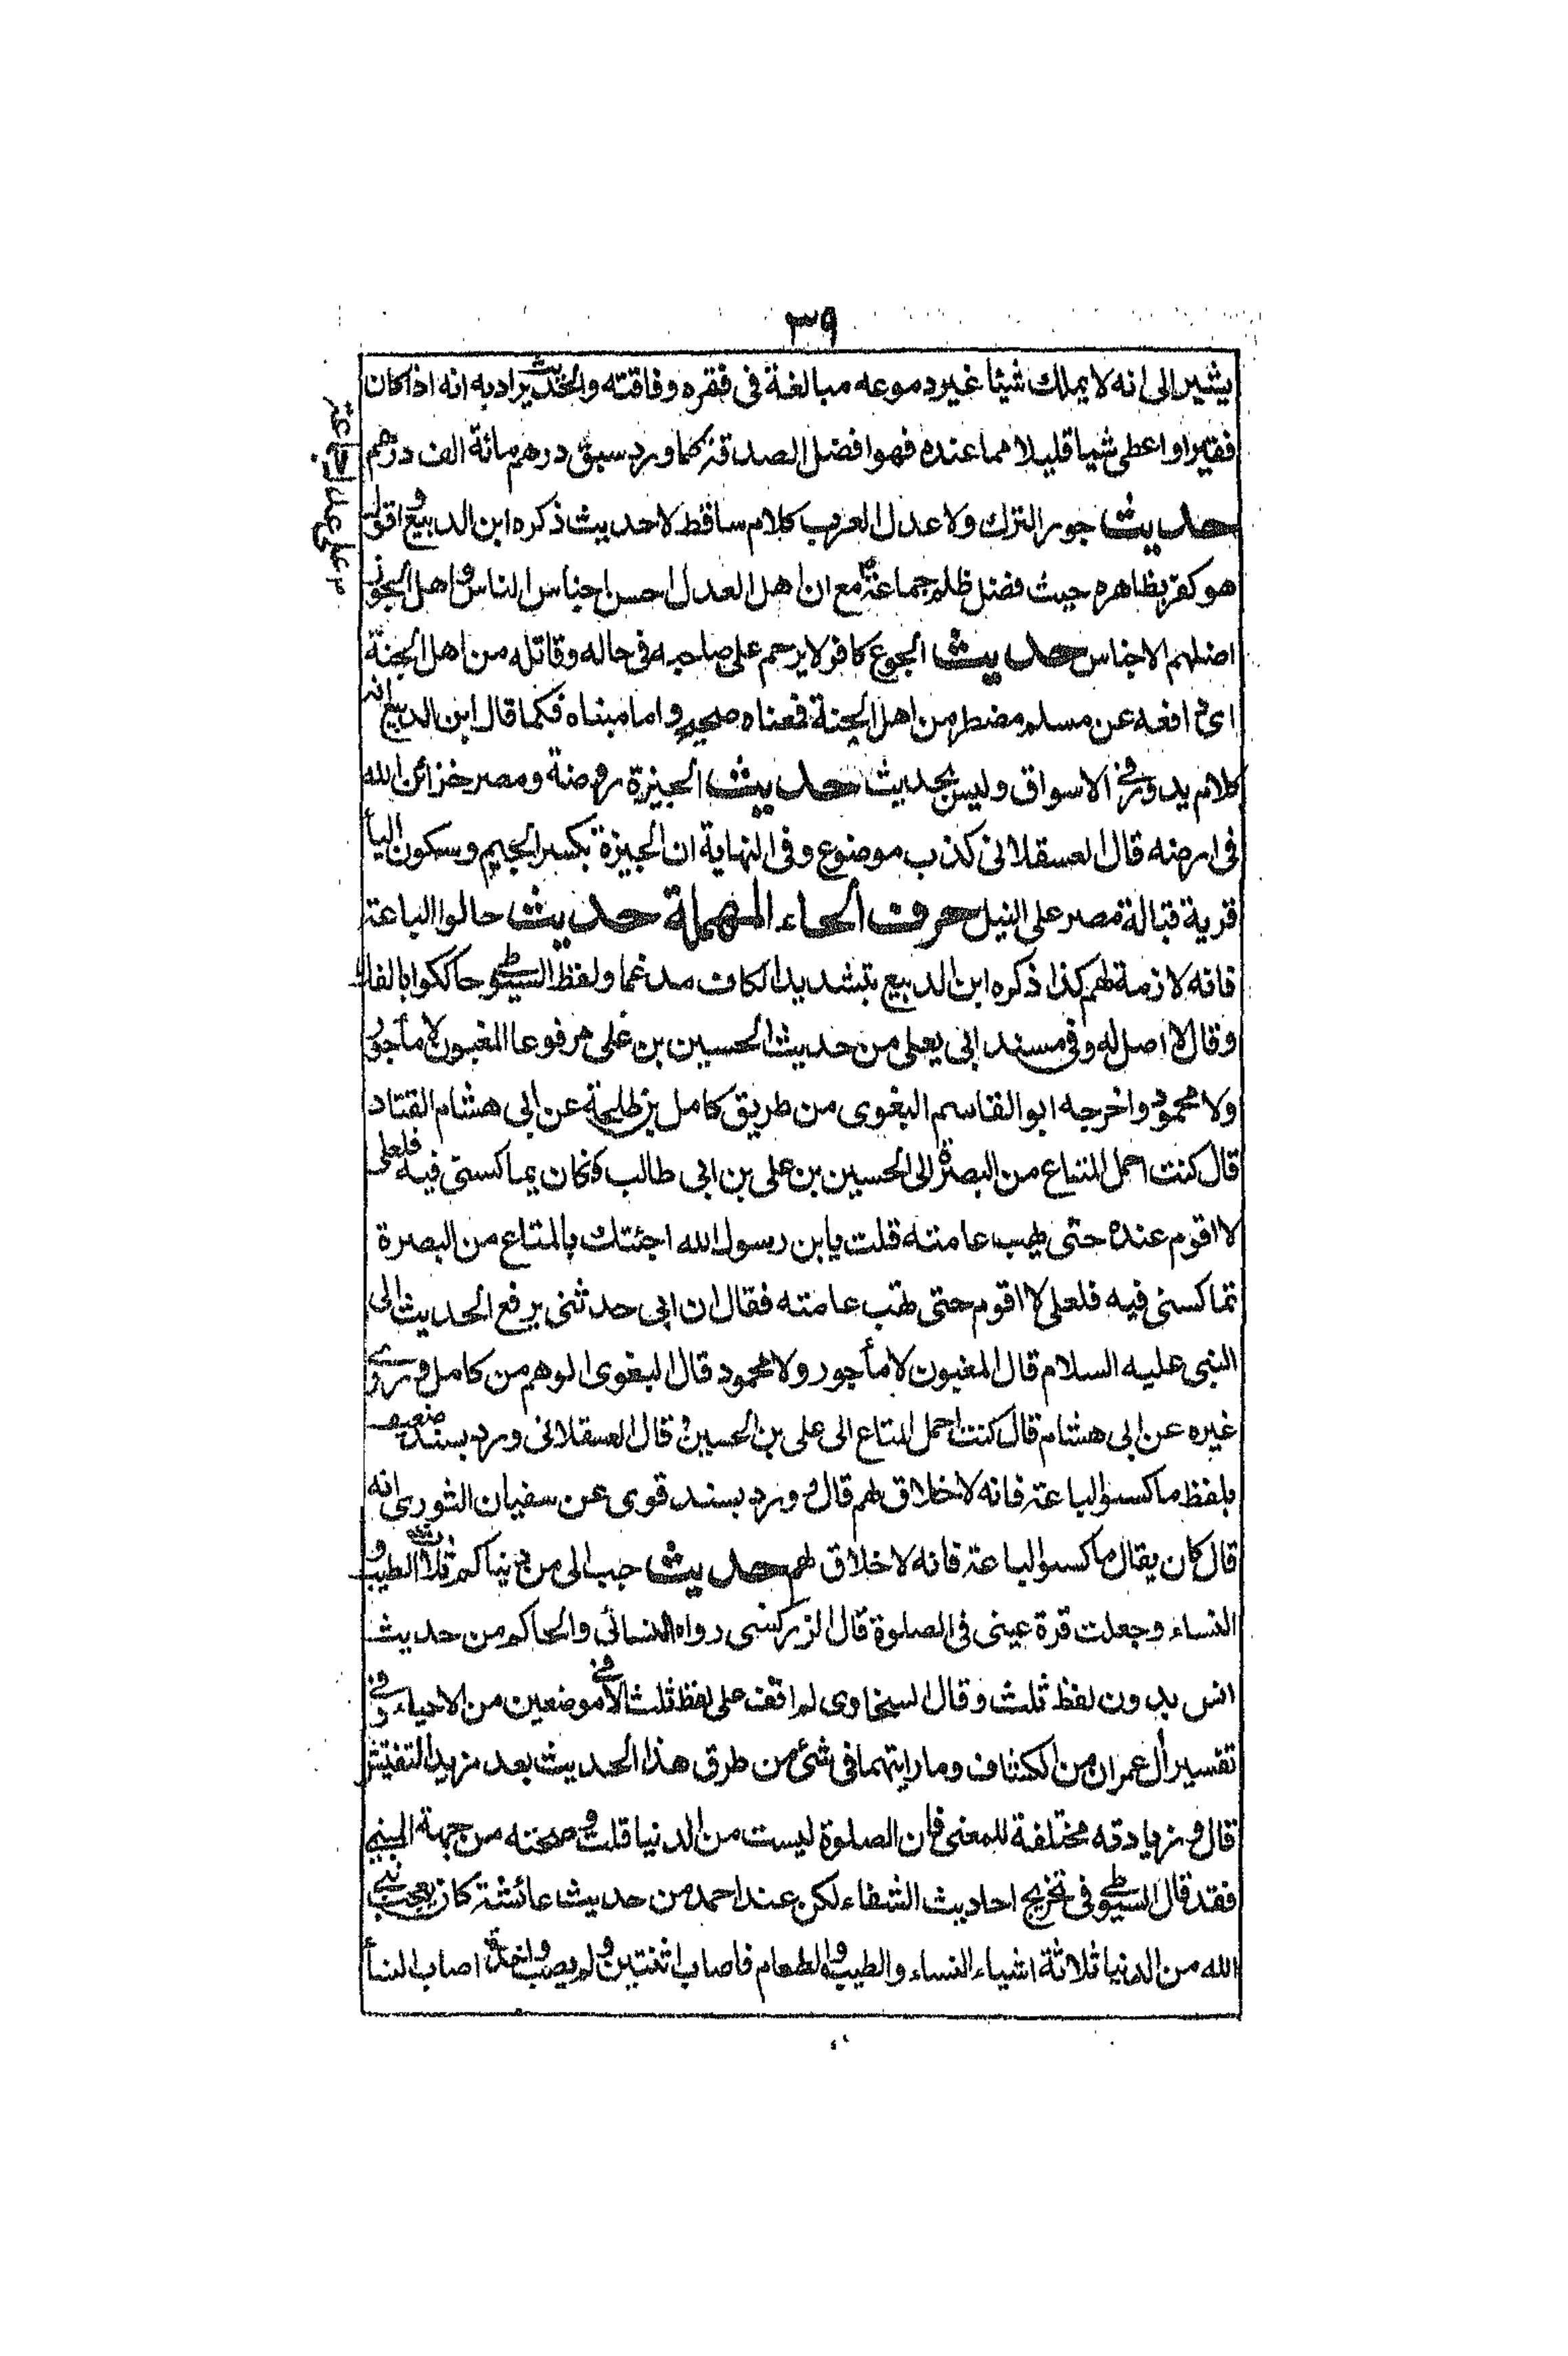 ٣٩
يشير الى انه لا يملك شيئا غير دموعه مبالغة فى فقره وفاقته والحديث يراد به انه اذا كان
فقيرا واعطى شيا قليلا مما عنده فهو افضل الصدقة كما ورد سبق درهم مائة الف درهم
حديث جور الترك ولا عدل العرب كلام ساقط لا حديث ذكره ابن الديبع واقول
هو كفر بظاهره حيث فضل ظلم جماعة مع ان اهل العدل احسن اجناس الناس واهل الجور
اضلهم الاجناس حديث الجوع كافر لا يرحم على صاحبه فى حاله وقاتله من اهل الجنة
اى دافعه عن مسلم مضطر من اهل الجنة فمعناه صحيح واما مبناه فكما قال ابن الديبع انه
كلام يدور فى الاسواق وليس بحديث حديث الجيزة روضة ومصر خزائن الله
فى ارضه قال العسقلانى كذب موضوع وفى النهاية ان الجيزة بكسر الجيم وسكون اليأ
قرية قبالة مصر على النيل حرف الحاء المهملة حديث حالوا الباعة
فانه لا ذمة لهم كذا ذكره ابن الديبع بتشديد الكاف مدغما ولفظ السيوطى حاككوا بالفك
وقال لا اصل له وفى مسند ابى يعلى من حديث الحسين بن على مرفوعا المغبون لا مأجور
ولا محمود واخرجه ابو القاسم البغوى من طريق كامل بن طليحة عن ابى هشام القتاد
قال كنت احمل المتاع من البصرة الى الحسين بن على بن ابى طالب فكان يماكسنى فيه فلعلى
لا اقوم عنده حتى يهب عامته قلت يا بن رسول الله اجئتك بالمتاع من البصرة
تماكسنى فيه فلعلى لا اقوم حتى تهب عامته فقال ان ابى حدثنى يرفع الحديث الى
النبى عليه السلام قال المغبون لا مأجور ولا محمود قال البغوى الوهم من كامل وروى
غيره عن ابى هشام قال كنت احمل المتاع الى على بن الحسين قال العسقلانى ورد بسند ضعيف
بلفظ ماكسوا الباعة فانه لا خلاق لهم قال و ورد بسند قوى عن سفيان الثورى انه
قال كان يقال ماكسوا الباعة فانه لا خلاق لهم حديث حبب الى من دنياكم ثلاث الطيب و
النساء وجعلت قرة عينى فى الصلوة قال الزركشى رواه النسائى والحاكم من حديث
انس بدون لفظ ثلث وقال السخاوى لم اقف على لفظ ثلث الا فى موضعين من الاحياء وفى
تفسير أل عمران من الكشاف وما رايتهما فى شئ من طرق هذا الحديث بعد مزيد التفتيش
قال و زيادته مختلفة للمعنى فان الصلوة ليست من الدنيا قلت وصحته من جهة المبنى
فقد قال السيوطى فى تخريج احاديث الشفاء لكن عند احمد من حديث عائشة كان يعجب نبى
الله من الدنيا ثلاثة اشياء النساء والطيب والطعام فاصاب اثنتين ولم يصب واحدة اصاب النسأ